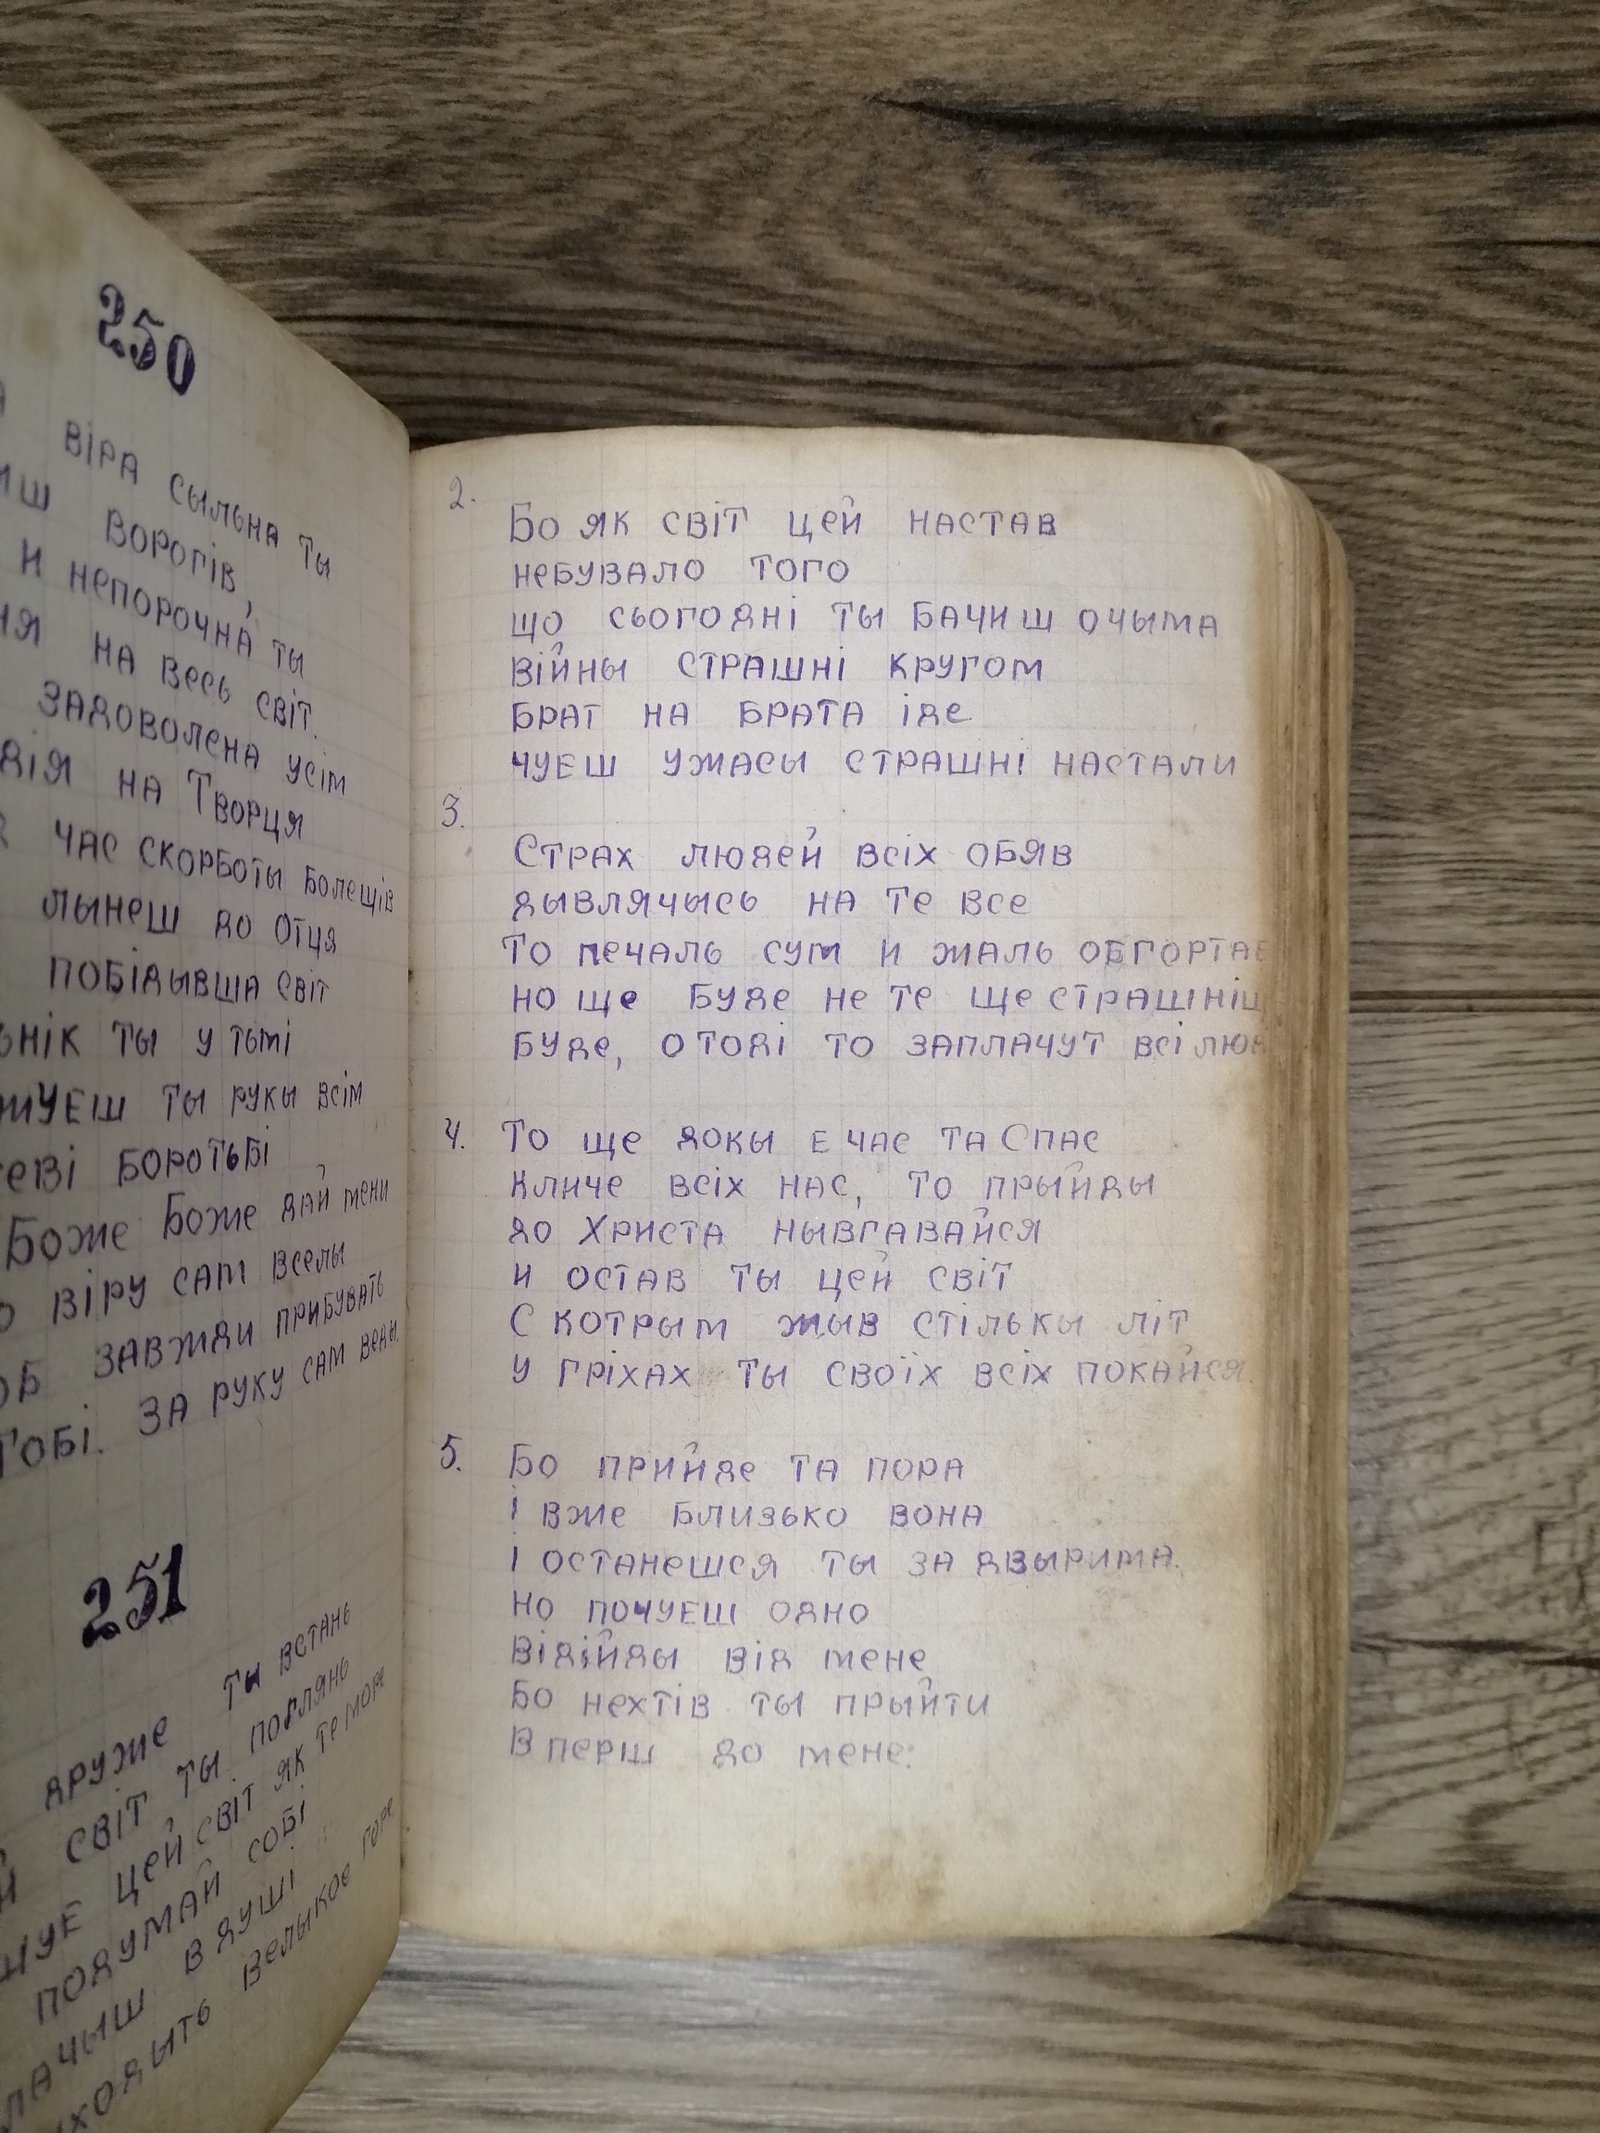 250
віра сыльна ты
ворогів,
и непорочна ты
на весь світ.
задоволена усім
на Творця
час скорботы болещів
лынеш до отця
побідывша світ
ты у тьмі
ты рукы всім
боротьбі
Боже Боже дай мени
віру сам вселы
завжди прибувать
тобі. за руку сам веди.
251
друже ты встань
світ ты поглянь
цей світ як те море
подумай собі
в душі
велыкое горе
2.
Бо як світ цей настав
небувало того
що сьогодні ты бачиш очыма
війны страшні кругом
брат на брата іде
чуеш ужасы страшні настали
3.
Страх людей всіх обяв
дывлячысь на те все
то печаль сум и жаль обгортає
но ще буде не те ще
буде, отоді то заплачут всі
4. То ще докы е час та Спас
кличе всіх нас, то прыйды
до Христа нывгавайся
и остав ты цей світ
с котрым жыв стількы літ
у гріхах ты своїх всіх покайся.
5. Бо прийде та пора
і вже близько вона
і останешся ты за двырима.
но почуеш одно
відійды від мене
бо нехтів ты прыйти
вперш до мене.